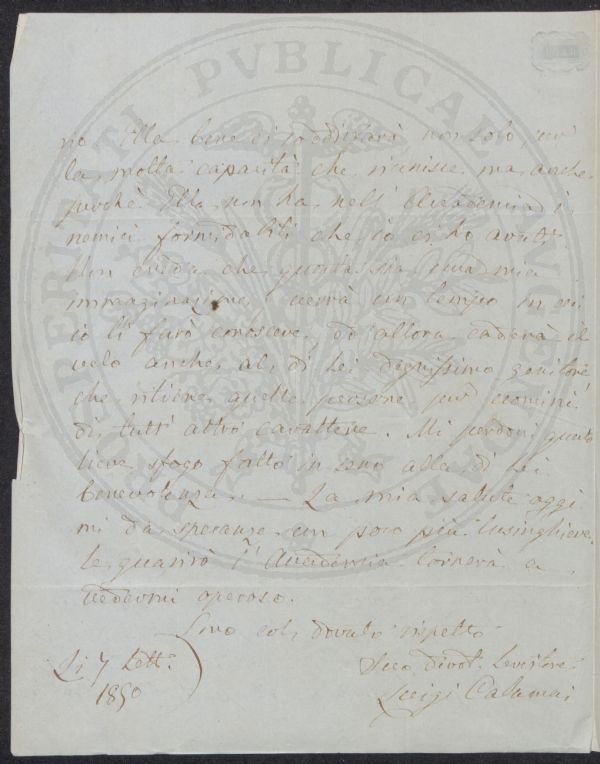 PROSPERITATI PVBLICAE AVGENDAE
rio. Ella bene ci soddisfarà non solo, per
la molta capacità che riunisce ma anche
perchè Ella non ha nell' Accademia i
nemici formidabili che io ci ho avuti.
Non creda che questa sia una mia
immaginazione, verrà un tempo in cui
io li farò conoscere, ed allora caderà il
velo anche al di Lei degnissimo genitore
che ritiene quelle persone per uomini
di tutt' altro carattere. Mi perdoni questo
lieve sfogo fatto in seno alla di Lei
benevolenza. — La mia salute oggi
mi dà speranze un poco più lusinghiere.
Se guarirò l' Accademia tornerà a
vedermi operoso.
Sono col dovuto rispetto
Li 7 Sett.
1850
Suo divot. Servitore
Luigi Calamai